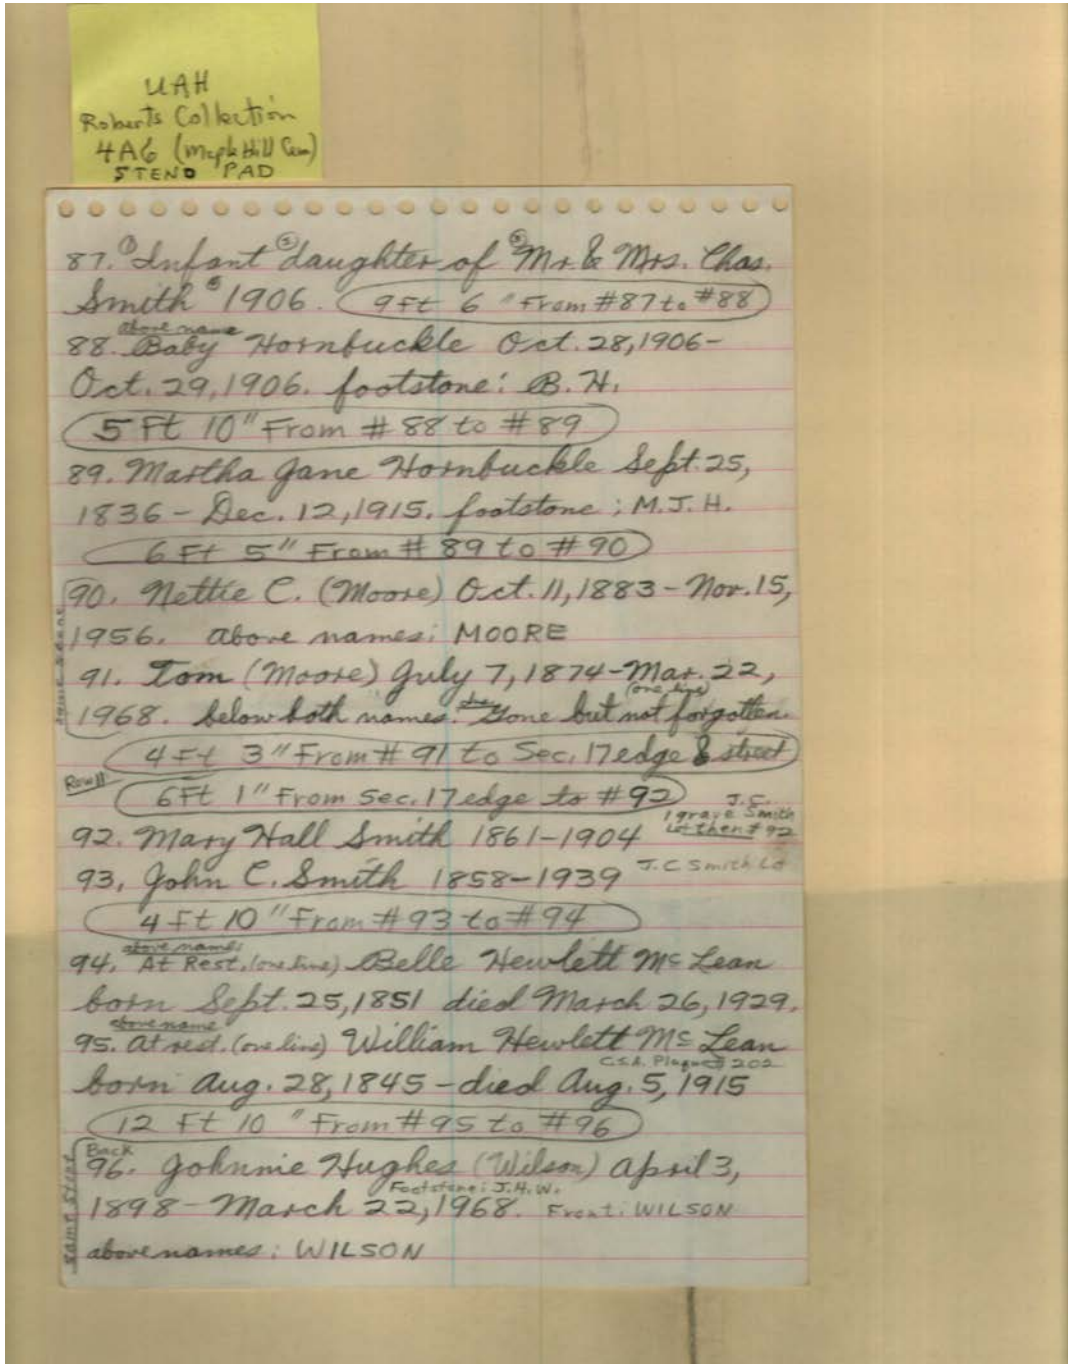 UAH
Roberts Collection
4A6 (Maple Hill Cem)
STENO PAD
87. ① Infant ② daughter of ③ Mr. & Mrs. Chas.
Smith 1906. 9 ft 6 " From #87 to #88
above name
88. Baby Hornbuckle Oct. 28, 1906-
Oct. 29, 1906. footstone: B. H.
5 Ft 10" From # 88 to # 89
89. Martha Jane Hornbuckle Sept. 25,
1836 - Dec. 12, 1915. footstone; M. J. H.
6 Ft 5" From # 89 to # 90
90. Nettie C. (Moore) Oct. 11, 1883 - Nov. 15,
1956. above names: MOORE
91. Tom (Moore) July 7, 1874-Mar. 22,
(one line)
1968. below both names. Gone but not forgotten.
same stone
4 Ft 3" From # 91 to Sec. 17 edge & street
Row 11
6 Ft 1" From Sec. 17 edge to # 92
J. C.
1 grave Smith
Lot then # 92
92. Mary Hall Smith 1861-1904
93. John C. Smith 1858-1939 J. C Smith Lot
4 Ft 10" From # 93 to # 94
above names
94. At Rest. (one line) Belle Hewlett Mc Lean
born Sept. 25, 1851 died March 26, 1929.
above name
95. At rest. (one line) William Hewlett Mc Lean
C.S.A. Plaque # 202
born Aug. 28, 1845 - died Aug. 5, 1915
12 Ft 10 " From # 95 to # 96
Back
96. Johnnie Hughes (Wilson) April 3,
Footstone: J. H. W.
1898 - March 22, 1968. Front: WILSON
above names: WILSON
same stone